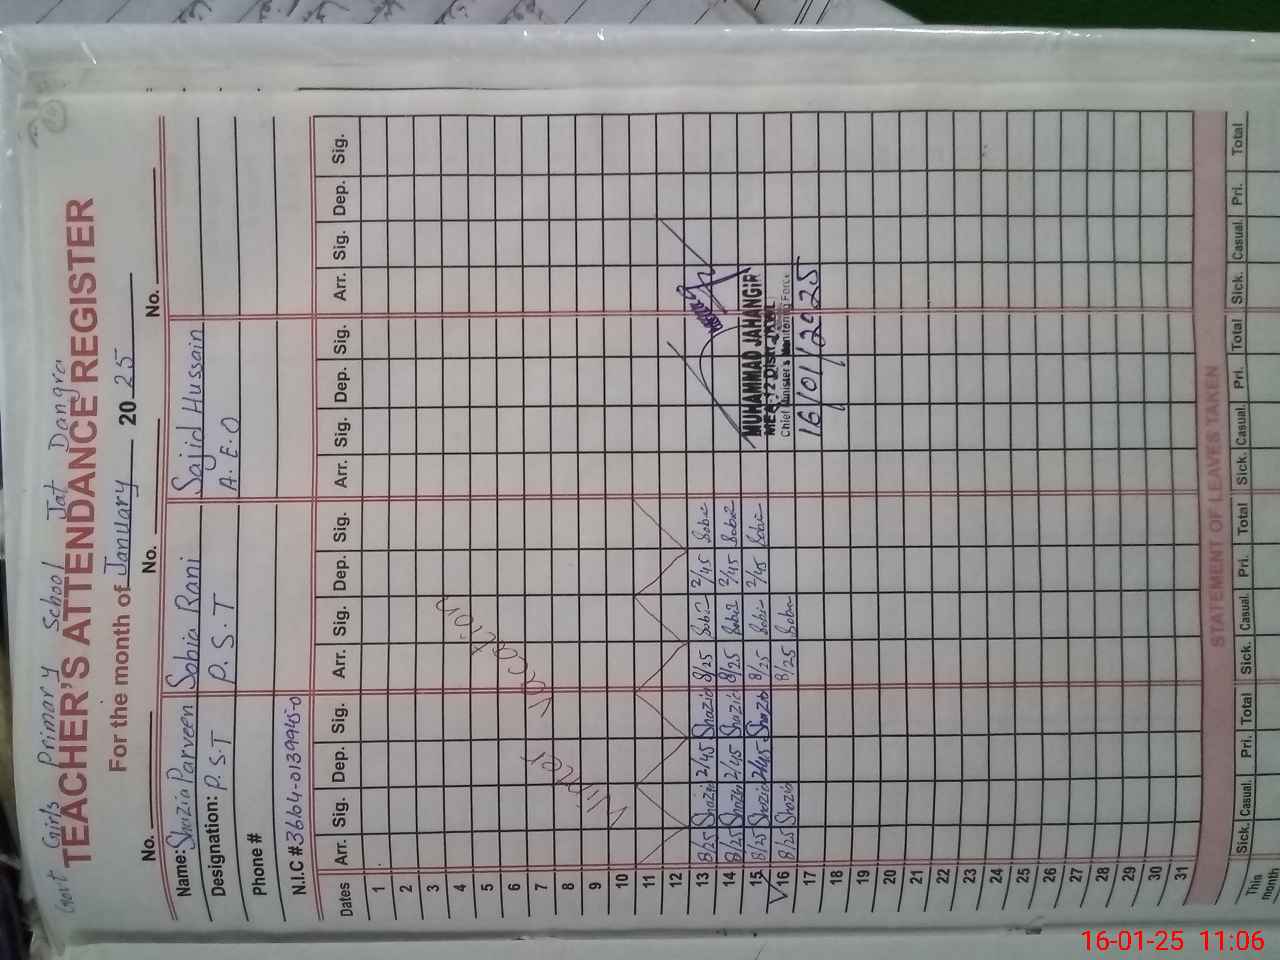 Govt Girls Primary School Jat Dangra
TEACHER'S ATTENDANCE REGISTER
For the month of January 2025
No. No. No. No.
Name: Shazia Parveen Sobia Rani Sajid Hussain
Designation: P.S.T P.S.T A.E.O
Phone #
N.I.C # 36104-0139945-0
Dates Arr. Sig. Dep. Sig. Arr. Sig. Dep. Sig. Arr. Sig. Dep. Sig. Arr. Sig. Dep. Sig.
1
2
3
4
5
6
7
8
9
10
Winter Vaccation
11
12
13 8/25 Shazia 2/45 Shazia 8/25 Sobia 2/45 Sobia
14 8/25 Shazia 2/45 Shazia 8/25 Sobia 2/45 Sobia
15 8/25 Shazia 2/45 Shazia 8/25 Sobia 2/45 Sobia
16 8/25 Shazia 8/25 Sobia
MUHAMMAD JAHANGIR
Chief Minister's Monitoring Force
16/01/2025
17
18
19
20
21
22
23
24
25
26
27
28
29
30
31
STATEMENT OF LEAVES TAKEN
Sick. Casual. Pri. Total Sick. Casual. Pri. Total Sick. Casual. Pri. Total Sick. Casual. Pri. Total
This month
16-01-25 11:06